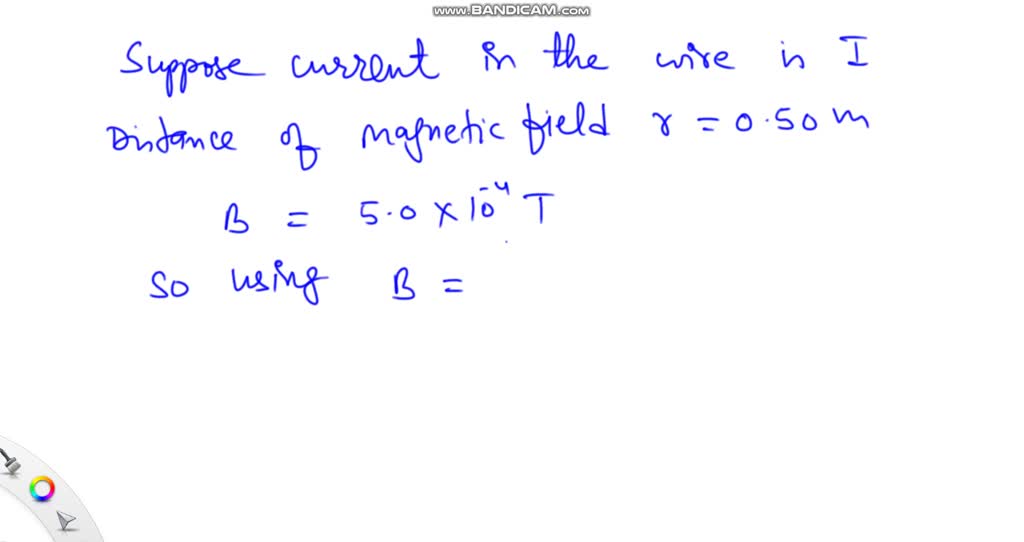 www.BANDICAM.com
Suppose current in the wire is I
Distance of magnetic field r = 0.50 m
B = 5.0 × 10⁻⁴ T
So using B =